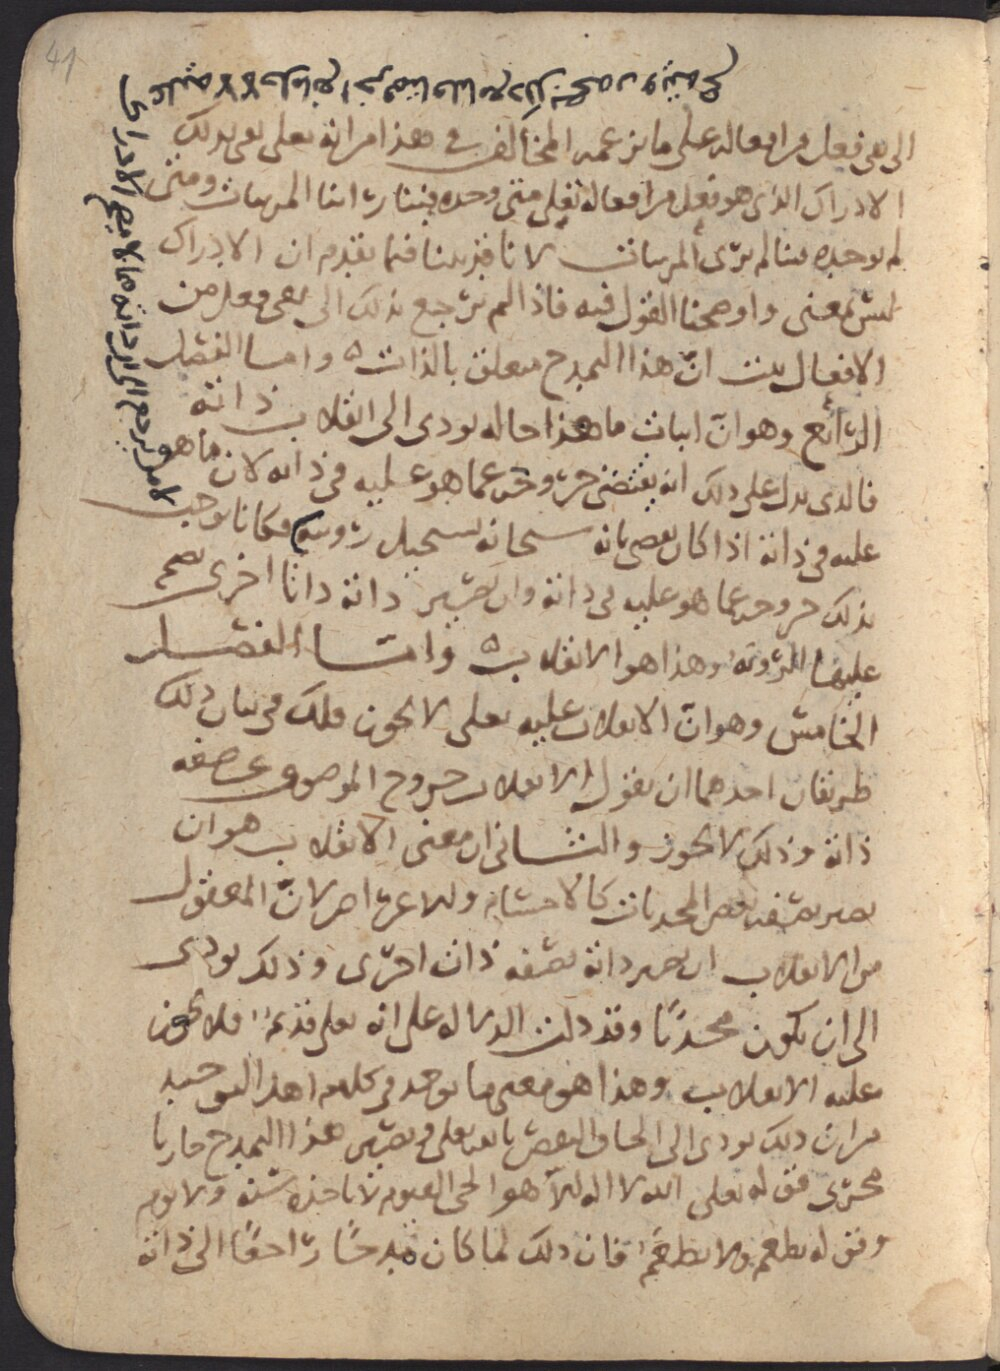 41
الى نفي فعل من افعاله على ما يزعمه المخالف في هذا من انه تعلى نفى بذلك
الادراك الذى هو فعل من افعاله تعلى متى وجده فينا راينا المرييات ومتى
لم يوجده فينا لم نرى المرييات لانا قد بينا فيما تقدم ان الادراك
ليس بمعنى واوضحنا القول فيه فاذا لم يرجع بذلك الى نفى فعل من
الافعال ثبت ان هذا التمدح متعلق بالذات ه واما الفصل
الرابع وهو ان اثبات ما هذا حاله يودى الى انقلاب ذاته
فالذى يدل على ذلك انه يقتضى خروجه عما هو عليه في ذاته لان ما هو
عليه في ذاته اذا كان يقضى بانه سبحانه يستحيل رؤيته فكانا نوجب
بذلك خروجه عما هو عليه في ذاته وان تصير ذاته ذاتا اخرى تصح
عليها الروية وهذا هو الانقلاب ه واما الفصل
الخامس وهو ان الانقلاب عليه تعلى لا يجوز فلك في بيان ذلك
طريقان احدهما ان نقول الانقلاب خروج الموصوف عن صفه
ذاته وذلك لا يجوز والثانى ان معنى الانقلاب هو ان
يصير بصفه بعض المحدثات كالاجسام والاعراض لان المعقول
من الانقلاب ان تصير ذاته بصفه ذات اخرى وذلك يودى
الى ان يكون محدثا وقد دلت الدلاله على انه تعلى قديم فلا يجوز
عليه الانقلاب وهذا هو معنى ما يوجد في كلام اهل التوحيد
من ان ذلك يودى الى الحاق النقص بالله تعلى فيصير هذا التمدح جاريا
مجرى قوله تعلى الله لا اله الا هو الحى القيوم لا تاخذه سنة ولا نوم
وقوله يطعم ولا يطعم فان ذلك لما كان مدحا راجعا الى ذاته